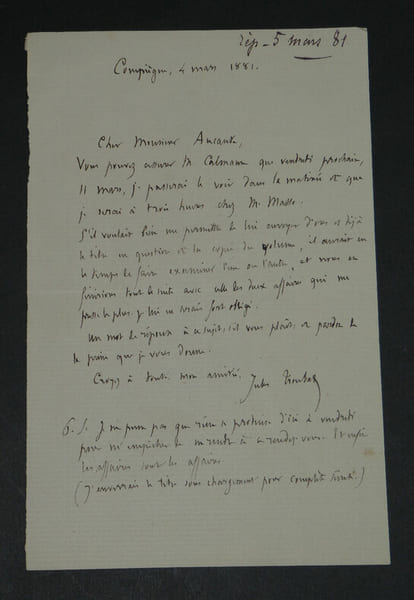 rép - 5 mars 81
Compiègne, 4 mars 1881.
Cher Monsieur Aucante,
Vous pouvez assurer M. Calmann que vendredi prochain,
11 mars, je passerai le voir dans la matinée et que
je serai à trois heures chez M. Masso.
S'il voulait bien me permettre de lui envoyer d'ici et déjà
le titre en question et la copie du volume, il aurait eu
le temps de faire examiner l'un ou l'autre et nous en
finirions tout de suite avec elle les deux affaires qui me
presse le plus. Je lui en serais fort obligé.
Un mot de réponse à ce sujet, s'il vous plaît, et pardon de
la peine que je vous donne.
Croyez à toute mon amitié,
Jules Troubat
P. S. Je ne pense pas que rien ne d'ici à vendredi
pour m'empêcher de me rendre à ce rendez-vous.
les affaires sont les affaires
(J'enverrais le titre sous chargement pour complète sûreté.)